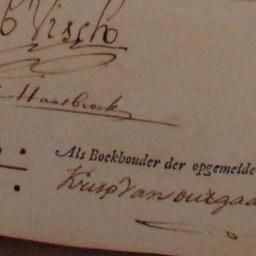 Visch
Haasbroek
Als Boekhouder der opgemelde
Krisp Van ourgaa